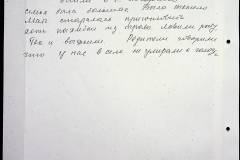 семья была большая. Было тяжело
Мать старалась приготовить
хоть похлебку из травы, ловили рыбу
Так и выжили. Родители говорили
что у нас в селе не умирали с голоду.